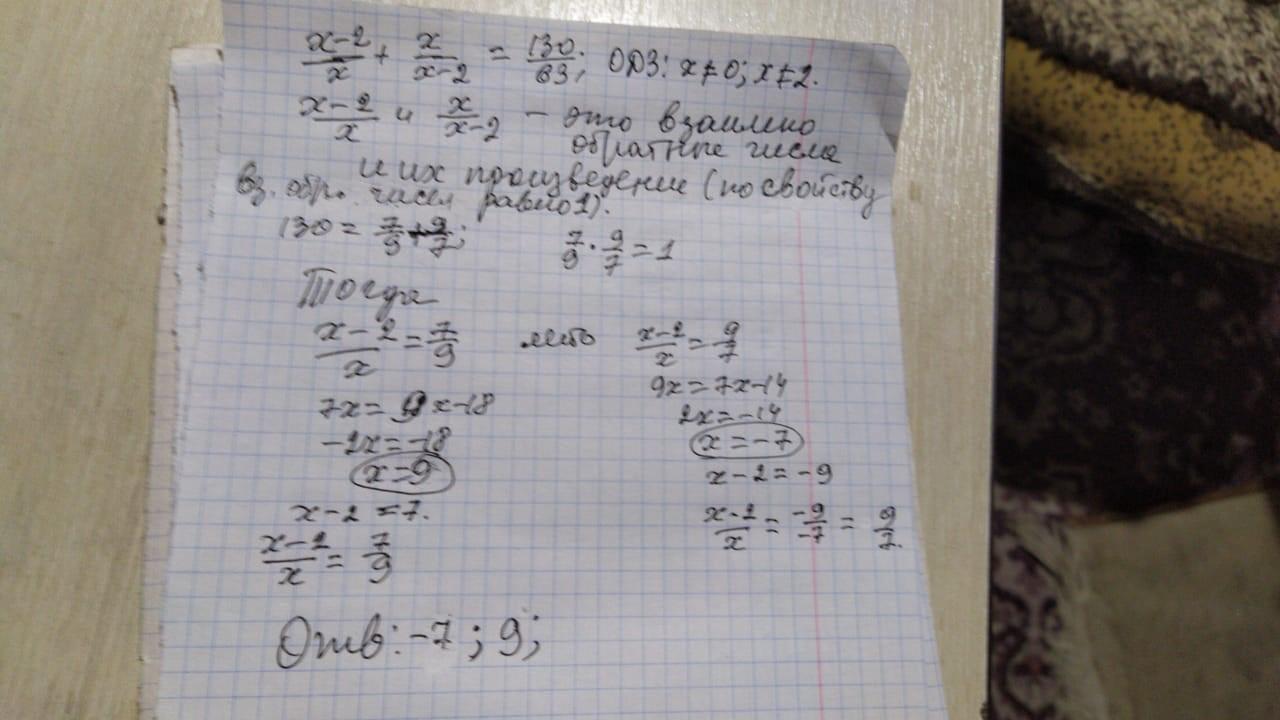 x-2/x + x/x-2 = 130/63; ОДЗ: x≠0; x≠2.
x-2/x и x/x-2 - это взаимно
обратные числа
и их произведение (по свойству
вз. обр. чисел равно 1).
130 = 7/9 + 9/7; 7/9 · 9/7 = 1
Тогда
x-2/x = 7/9 либо x-2/x = 9/7
7x = 9x-18 9x = 7x-14
-2x = -18 2x = -14
x=9 x = -7
x-2 = 7. x-2 = -9
x-2/x = 7/9 x-2/x = -9/-7 = 9/7.
Отв: -7; 9;